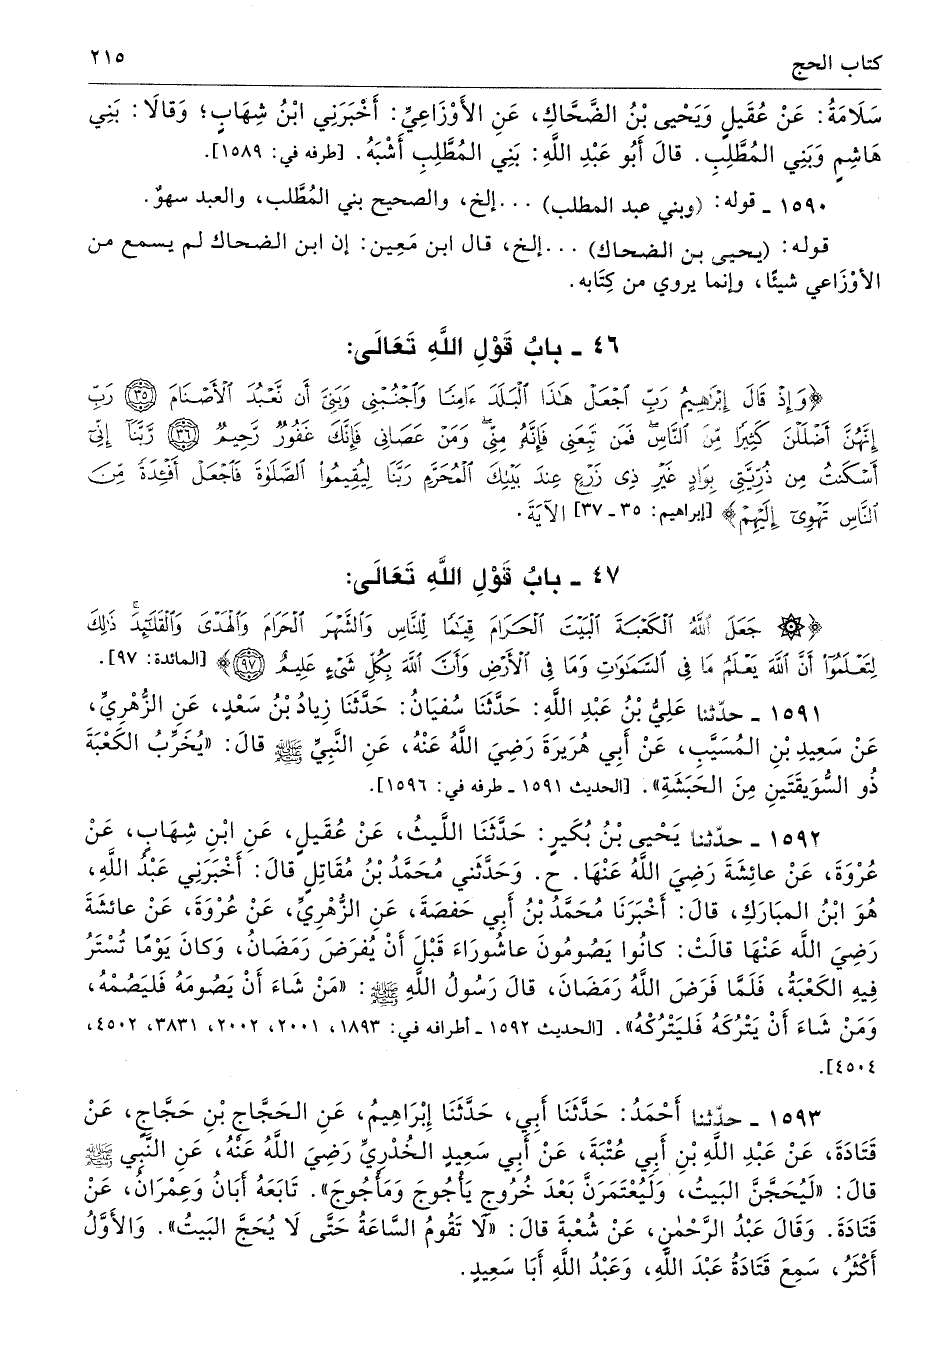 كتاب الحج ٢١٥
سَلَامَةُ: عَنْ عُقَيلٍ وَيَحْيى بْنُ الضَّحَّاكِ، عَنِ الأَوْزَاعِيِّ: أَخْبَرَنِي ابْنُ شِهَابٍ؛ وَقالَا: بَنِي
هَاشِمٍ وَبَنِي المُطَّلِبِ. قالَ أَبُو عَبْدِ اللَّهِ: بَنِي المُطَّلِبِ أَشْبَهُ. [طرفه في: ١٥٨٩].
١٥٩٠ ـ قوله: (وبني عبد المطلب) ...إلخ، والصحيح بني المُطَّلب، والعبد سهوٌ.
قوله: (يحيى بن الضحاك) ...إلخ، قال ابن مَعِين: إن ابن الضحاك لم يسمع من
الأوْزَاعي شيئًا، وإنما يروي من كِتَابه.
٤٦ ـ بابُ قَوْلِ اللَّهِ تَعَالَى:
﴿وَإِذْ قَالَ إِبْرَٰهِيمُ رَبِّ ٱجْعَلْ هَٰذَا ٱلْبَلَدَ ءَامِنًا وَٱجْنُبْنِى وَبَنِىَّ أَن نَّعْبُدَ ٱلْأَصْنَامَ ۝٣٥ رَبِّ
إِنَّهُنَّ أَضْلَلْنَ كَثِيرًا مِّنَ ٱلنَّاسِ ۖ فَمَن تَبِعَنِى فَإِنَّهُ مِنِّى ۖ وَمَنْ عَصَانِى فَإِنَّكَ غَفُورٌ رَّحِيمٌ ۝٣٦ رَّبَّنَآ إِنِّىٓ
أَسْكَنتُ مِن ذُرِّيَّتِى بِوَادٍ غَيْرِ ذِى زَرْعٍ عِندَ بَيْتِكَ ٱلْمُحَرَّمِ رَبَّنَا لِيُقِيمُوا۟ ٱلصَّلَوٰةَ فَٱجْعَلْ أَفْـِٔدَةً مِّنَ
ٱلنَّاسِ تَهْوِىٓ إِلَيْهِمْ﴾ [إبراهيم: ٣٥ ـ ٣٧] الآيَةَ.
٤٧ ـ بابُ قَوْلِ اللَّهِ تَعَالَى:
﴿۞ جَعَلَ ٱللَّهُ ٱلْكَعْبَةَ ٱلْبَيْتَ ٱلْحَرَامَ قِيَٰمًا لِّلنَّاسِ وَٱلشَّهْرَ ٱلْحَرَامَ وَٱلْهَدْىَ وَٱلْقَلَٰٓئِدَ ۚ ذَٰلِكَ
لِتَعْلَمُوٓا۟ أَنَّ ٱللَّهَ يَعْلَمُ مَا فِى ٱلسَّمَٰوَٰتِ وَمَا فِى ٱلْأَرْضِ وَأَنَّ ٱللَّهَ بِكُلِّ شَىْءٍ عَلِيمٌ ۝٩٧﴾ [المائدة: ٩٧].
١٥٩١ ـ حدّثنا عَلِيُّ بْنُ عَبْدِ اللَّهِ: حَدَّثَنَا سُفيَانُ: حَدَّثَنَا زِيادُ بْنُ سَعْدٍ، عَنِ الزُّهْرِيِّ،
عَنْ سَعِيدِ بْنِ المُسَيَّبِ، عَنْ أَبِي هُرَيرَةَ رَضِيَ اللَّهُ عَنْهُ، عَنِ النَّبِيِّ ﷺ قالَ: «يُخَرِّبُ الكَعْبَةَ
ذُو السُّوَيقَتَينِ مِنَ الحَبَشَةِ». [الحديث ١٥٩١ ـ طرفه في: ١٥٩٦].
١٥٩٢ ـ حدّثنا يَحْيى بْنُ بُكَيرٍ: حَدَّثَنَا اللَّيثُ، عَنْ عُقَيلٍ، عَنِ ابْنِ شِهَابٍ، عَنْ
عُرْوَةَ، عَنْ عائِشَةَ رَضِيَ اللَّهُ عَنْهَا. ح. وَحَدَّثَني مُحَمَّدُ بْنُ مُقَاتِلٍ قالَ: أَخْبَرَنِي عَبْدُ اللَّهِ،
هُوَ ابْنُ المبَارَكِ، قالَ: أَخْبَرَنَا مُحَمَّدُ بْنُ أَبِي حَفصَةَ، عَنِ الزُّهْرِيِّ، عَنْ عُرْوَةَ، عَنْ عائشَةَ
رَضِيَ الله عَنْهَا قالَتْ: كانُوا يَصُومُونَ عاشُورَاءَ قَبْلَ أَنْ يُفرَضَ رَمَضَانُ، وَكانَ يَوْمًا تُسْتَرُ
فِيهِ الكَعْبَةُ، فَلَمَّا فَرَضَ اللَّهُ رَمَضَانَ، قالَ رَسُولُ اللَّهِ ﷺ: «مَنْ شَاءَ أَنْ يَصُومَهُ فَليَصُمْهُ،
وَمَنْ شَاءَ أَنْ يَتْرُكَهُ فَليَتْرُكْهُ». [الحديث ١٥٩٢ ـ أطرافه في: ١٨٩٣، ٢٠٠١، ٢٠٠٢، ٣٨٣١، ٤٥٠٢،
٤٥٠٤].
١٥٩٣ ـ حدّثنا أَحْمَدُ: حَدَّثَنَا أَبِي، حَدَّثَنَا إِبْرَاهِيمُ، عَنِ الحَجَّاجِ بْنِ حَجَّاجٍ، عَنْ
قَتَادَةَ، عَنْ عَبْدِ اللَّهِ بْنِ أَبِي عُتْبَةَ، عَنْ أَبِي سَعِيدٍ الخُدْرِيِّ رَضِيَ اللَّهُ عَنْهُ، عَنِ النَّبِّي ﷺ
قالَ: «لَيُحَجَّنَّ البَيتُ، وَلَيُعْتَمَرَنَّ بَعْدَ خُرُوجِ يَأْجُوجَ وَمَأْجُوجَ». تَابَعَهُ أَبَانُ وَعِمْرَانُ، عَنْ
قَتَادَةَ. وَقالَ عَبْدُ الرَّحْمٰنِ، عَنْ شُعْبَةَ قالَ: «لَا تَقُومُ السَّاعَةُ حَتَّى لَا يُحَجَّ البَيتُ». وَالأَوَّلُ
أَكْثَرُ، سَمِعَ قَتَادَةُ عَبْدَ اللَّهِ، وَعَبْدُ اللَّهِ أَبَا سَعِيدٍ.